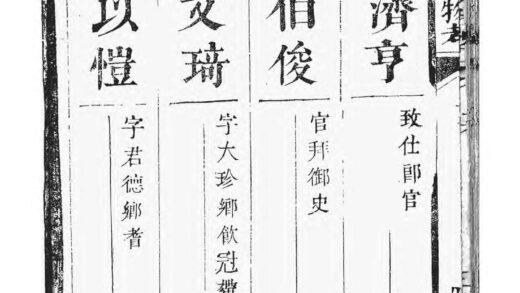 濟亨
致仕郎官
伯俊
官拜御史
文琦
字大珍鄉飲冠帶
以愷
字君德鄉耆